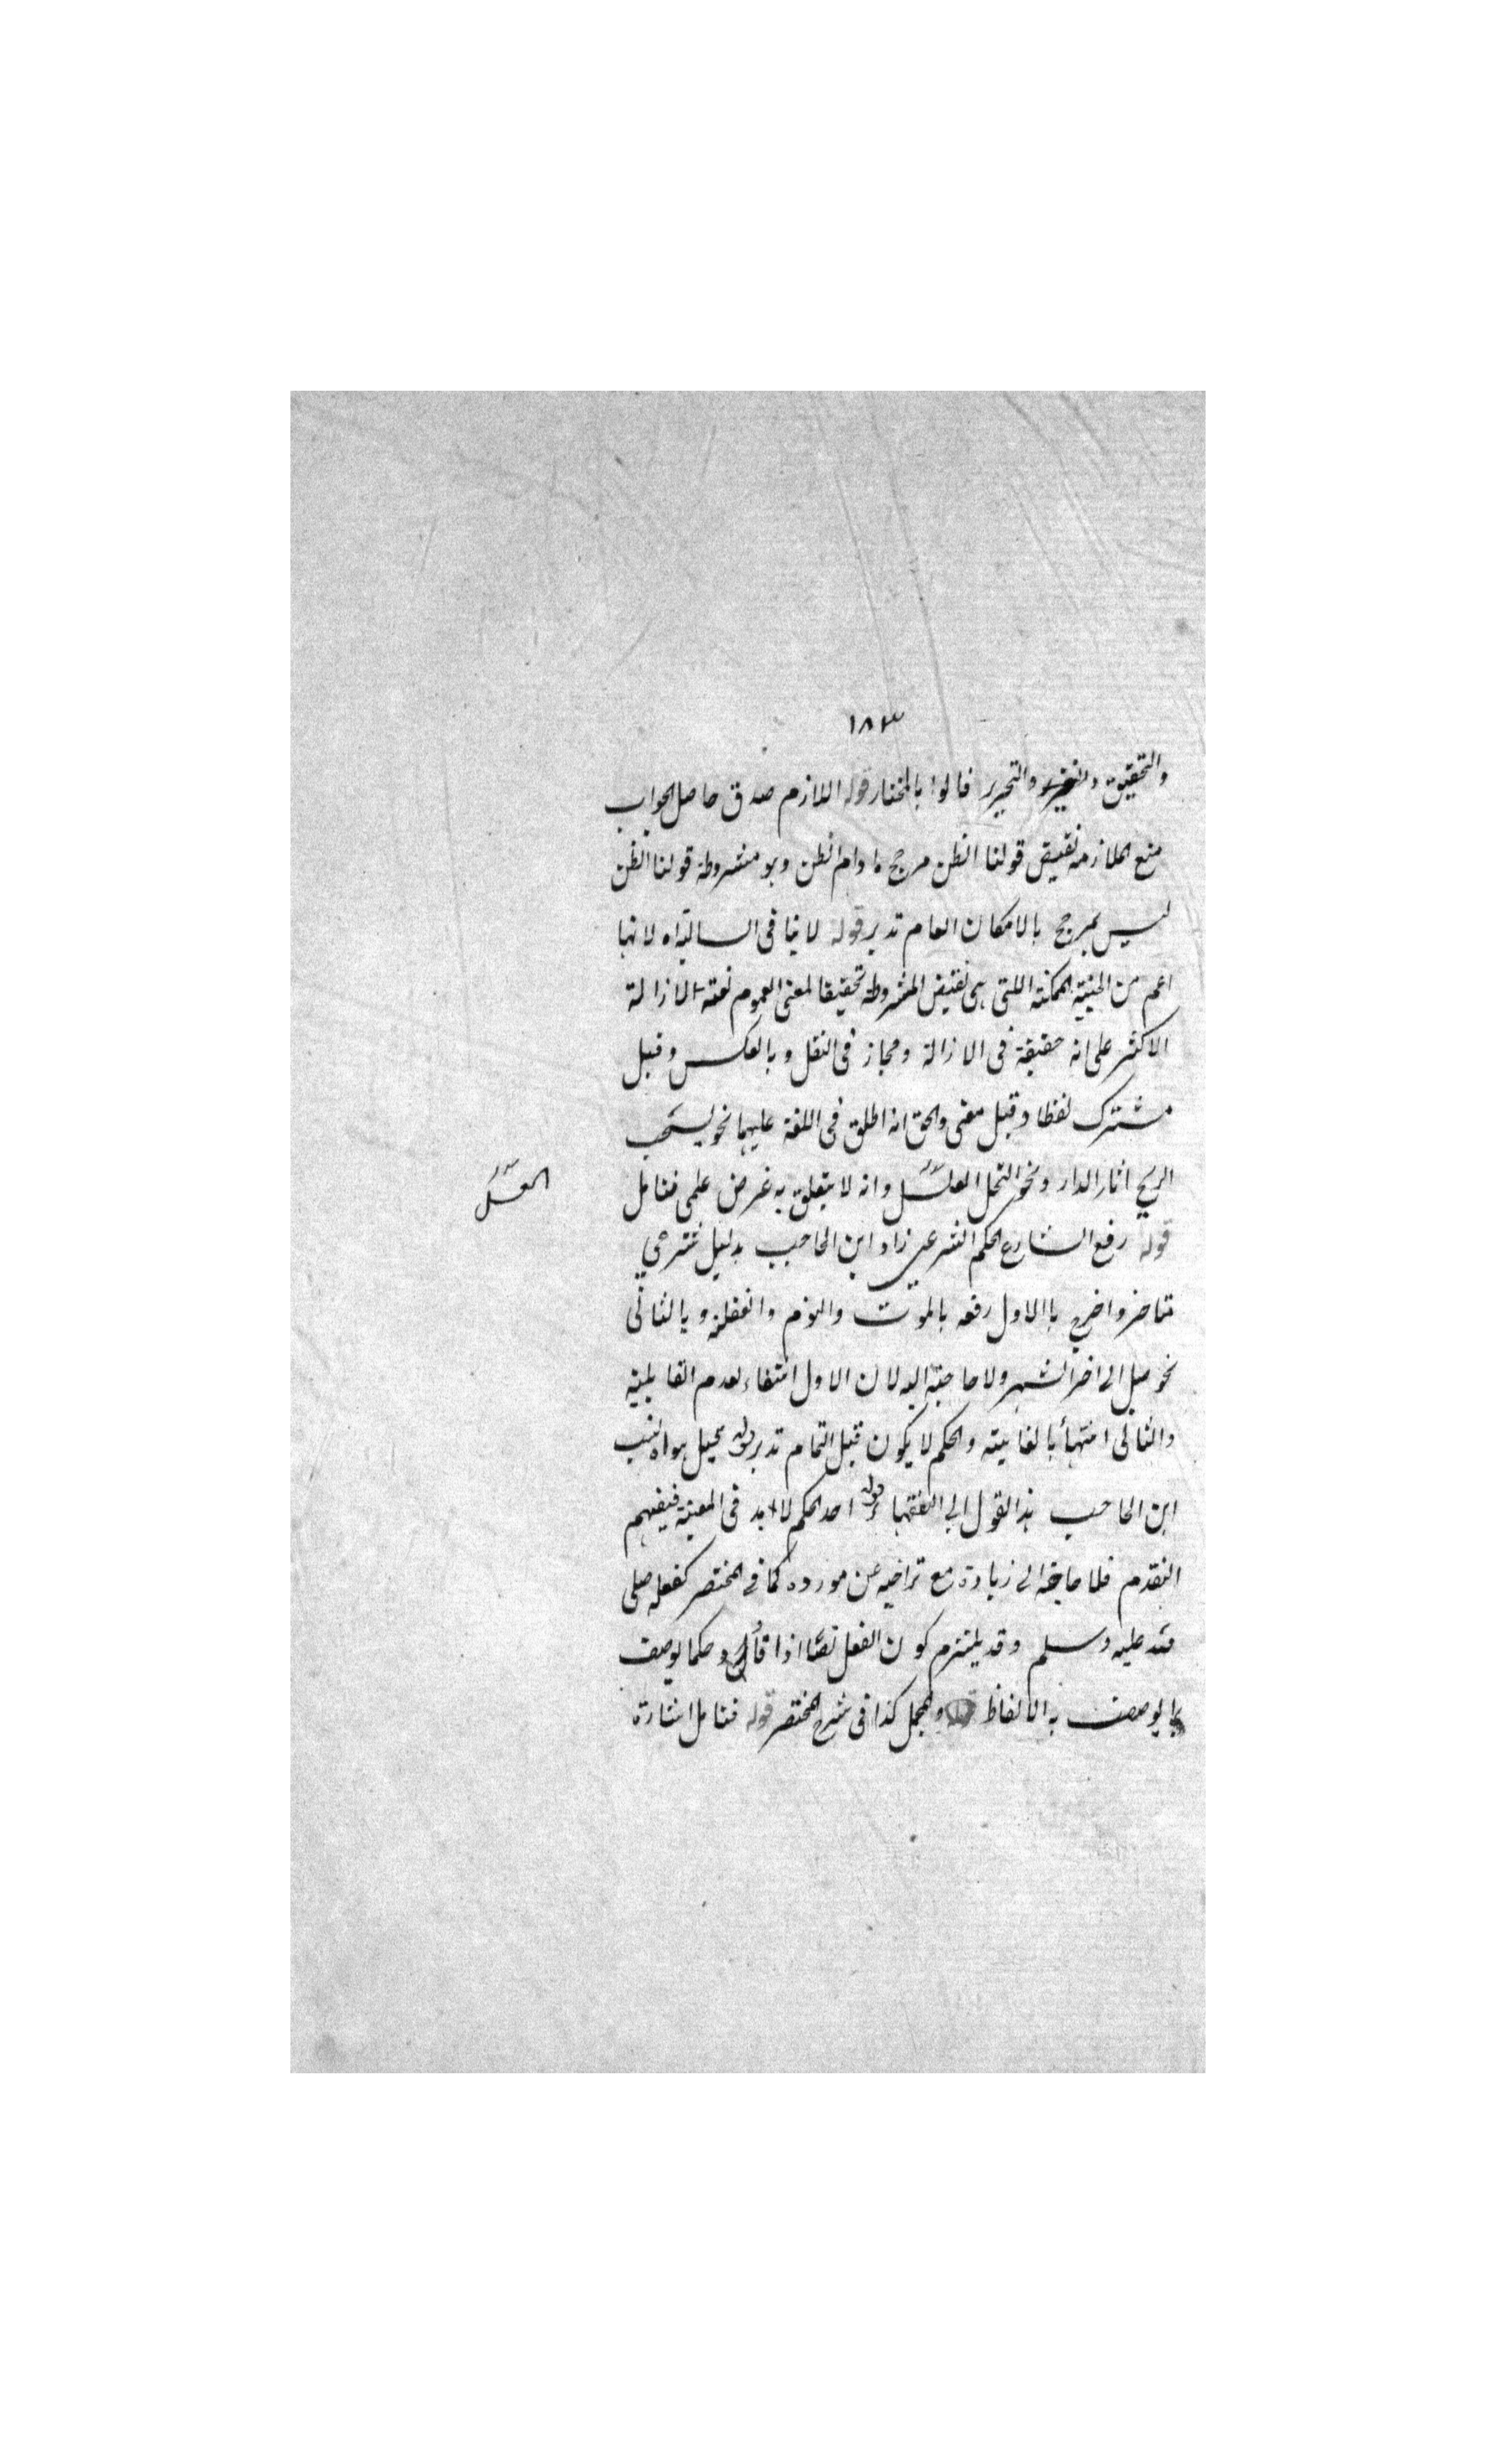 ١٨٣
والتحقيق والتحرير قالوا بالمختار قوله اللازم صدق حاصل الجواب
منع الملازمة نقيض قولنا الظن مرجح ما دام الظن وهو مشروطة قولنا الظن
ليس بمرجح بالامكان العام تدبر قوله لا ينافى السالبة اه لانها
اعم من الحينية الممكنة اللتى هى نقيض المشروطة تحقيقا لمعنى العموم لغة الازالة
الاكثر على انه حقيقة فى الازالة ومجاز فى النقل وبالعكس وقيل
مشترك لفظا وقيل معنى والحق انه اطلق فى اللغة عليهما نحو
الريح اثار الدار ونحو النحل العسل وانه لا يتعلق به غرض علمى فتامل
العسل
قوله رفع الشارع الحكم الشرعى زاد ابن الحاجب بدليل شرعي
متاخر واخرج باالاول رفعه بالموت والنوم والغفلة وبالثانى
نحو صل الى اخر الشهر ولا حاجة اليه لان الاول انتفاء لعدم القابلية
والثانى انتهأ بالغاية والحكم لا يكون قبل التمام تدبر قوله هو اه نسب
ابن الحاجب هذا القول الى الفقها قوله احد الحكم لا بد فى المعية فيفهم
التقدم فلا حاجة الى زيادة مع تراخيه عن مورده كما فى المختصر كفعله صلى
الله عليه وسلم وقد يلتزم كون الفعل نصّا اذا حكما يوصف
بما يوصف به الالفاظ والمجمل كذا فى شرح المختصر قوله فتامل اشارة